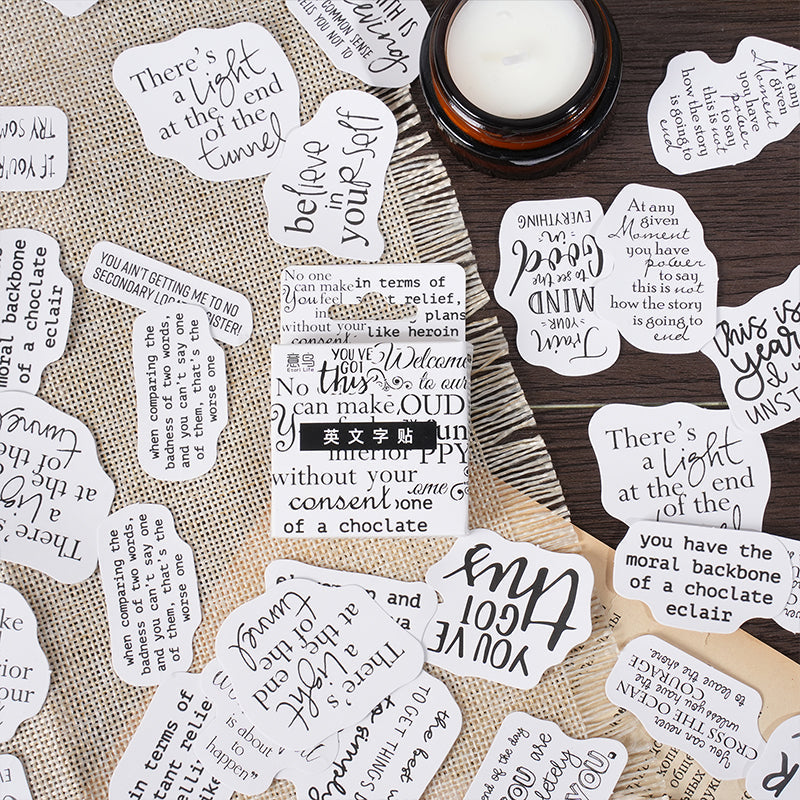 COMMON SENSE
TELLS YOU NOT TO
IS H
There's
a light
at the end
of the
tunnel
believe
in
yourself
At any
given
Moment
you have
power
to say
this is not
how the story
is going to
end
TRY SOM
IF YOU'R
EVERYTHING
in
Good
to see the
MIND
YOUR
Train
At any
given
Moment
you have
power
to say
this is not
how the story
is going to
end
moral backbone
of a choclate
eclair
YOU AIN'T GETTING ME TO NO
SECONDARY LOCA
ISTER!
when comparing the
badness of two words,
and you can't say one
of them, that's the
worse one
No one
can make
You feel
without your
consent
in terms of
relief,
plans
like heroin
意鸟
Esori Life
YOU'VE
GOT
this
Welcome
to our
No
can make
OUD
英文字贴
inferior
PPY
without your
ome
consent
one
of a choclate
this is
year
I w
UNST
There's
a light
at the end
of the
tunnel
There's
a light
at the end
of the
tunnel
you have the
moral backbone
of a choclate
eclair
when comparing the
badness of two words,
and you can't say one
of them, that's the
worse one
YOU'VE
GOT
this
and
There's
a light
at the end
of the
tunnel
rior
your
You can never
CROSS THE OCEAN
unless you have the
COURAGE
to leave the shore.
in terms of
tant relie
is about
to
happen"
the best w
TO GET THINGS
to simply
end of the day
YOU are
pletely
YOU.